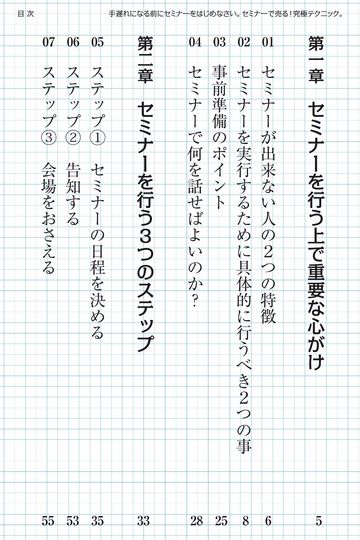 目次
手遅れになる前にセミナーをはじめなさい。セミナーで売る!究極テクニック。
第一章 セミナーを行う上で重要な心がけ 5
01 セミナーが出来ない人の2つの特徴 6
02 セミナーを実行するために具体的に行うべき2つの事 8
03 事前準備のポイント 25
04 セミナーで何を話せばよいのか? 28
第二章 セミナーを行う3つのステップ 33
05 ステップ① セミナーの日程を決める 35
06 ステップ② 告知する 53
07 ステップ③ 会場をおさえる 55